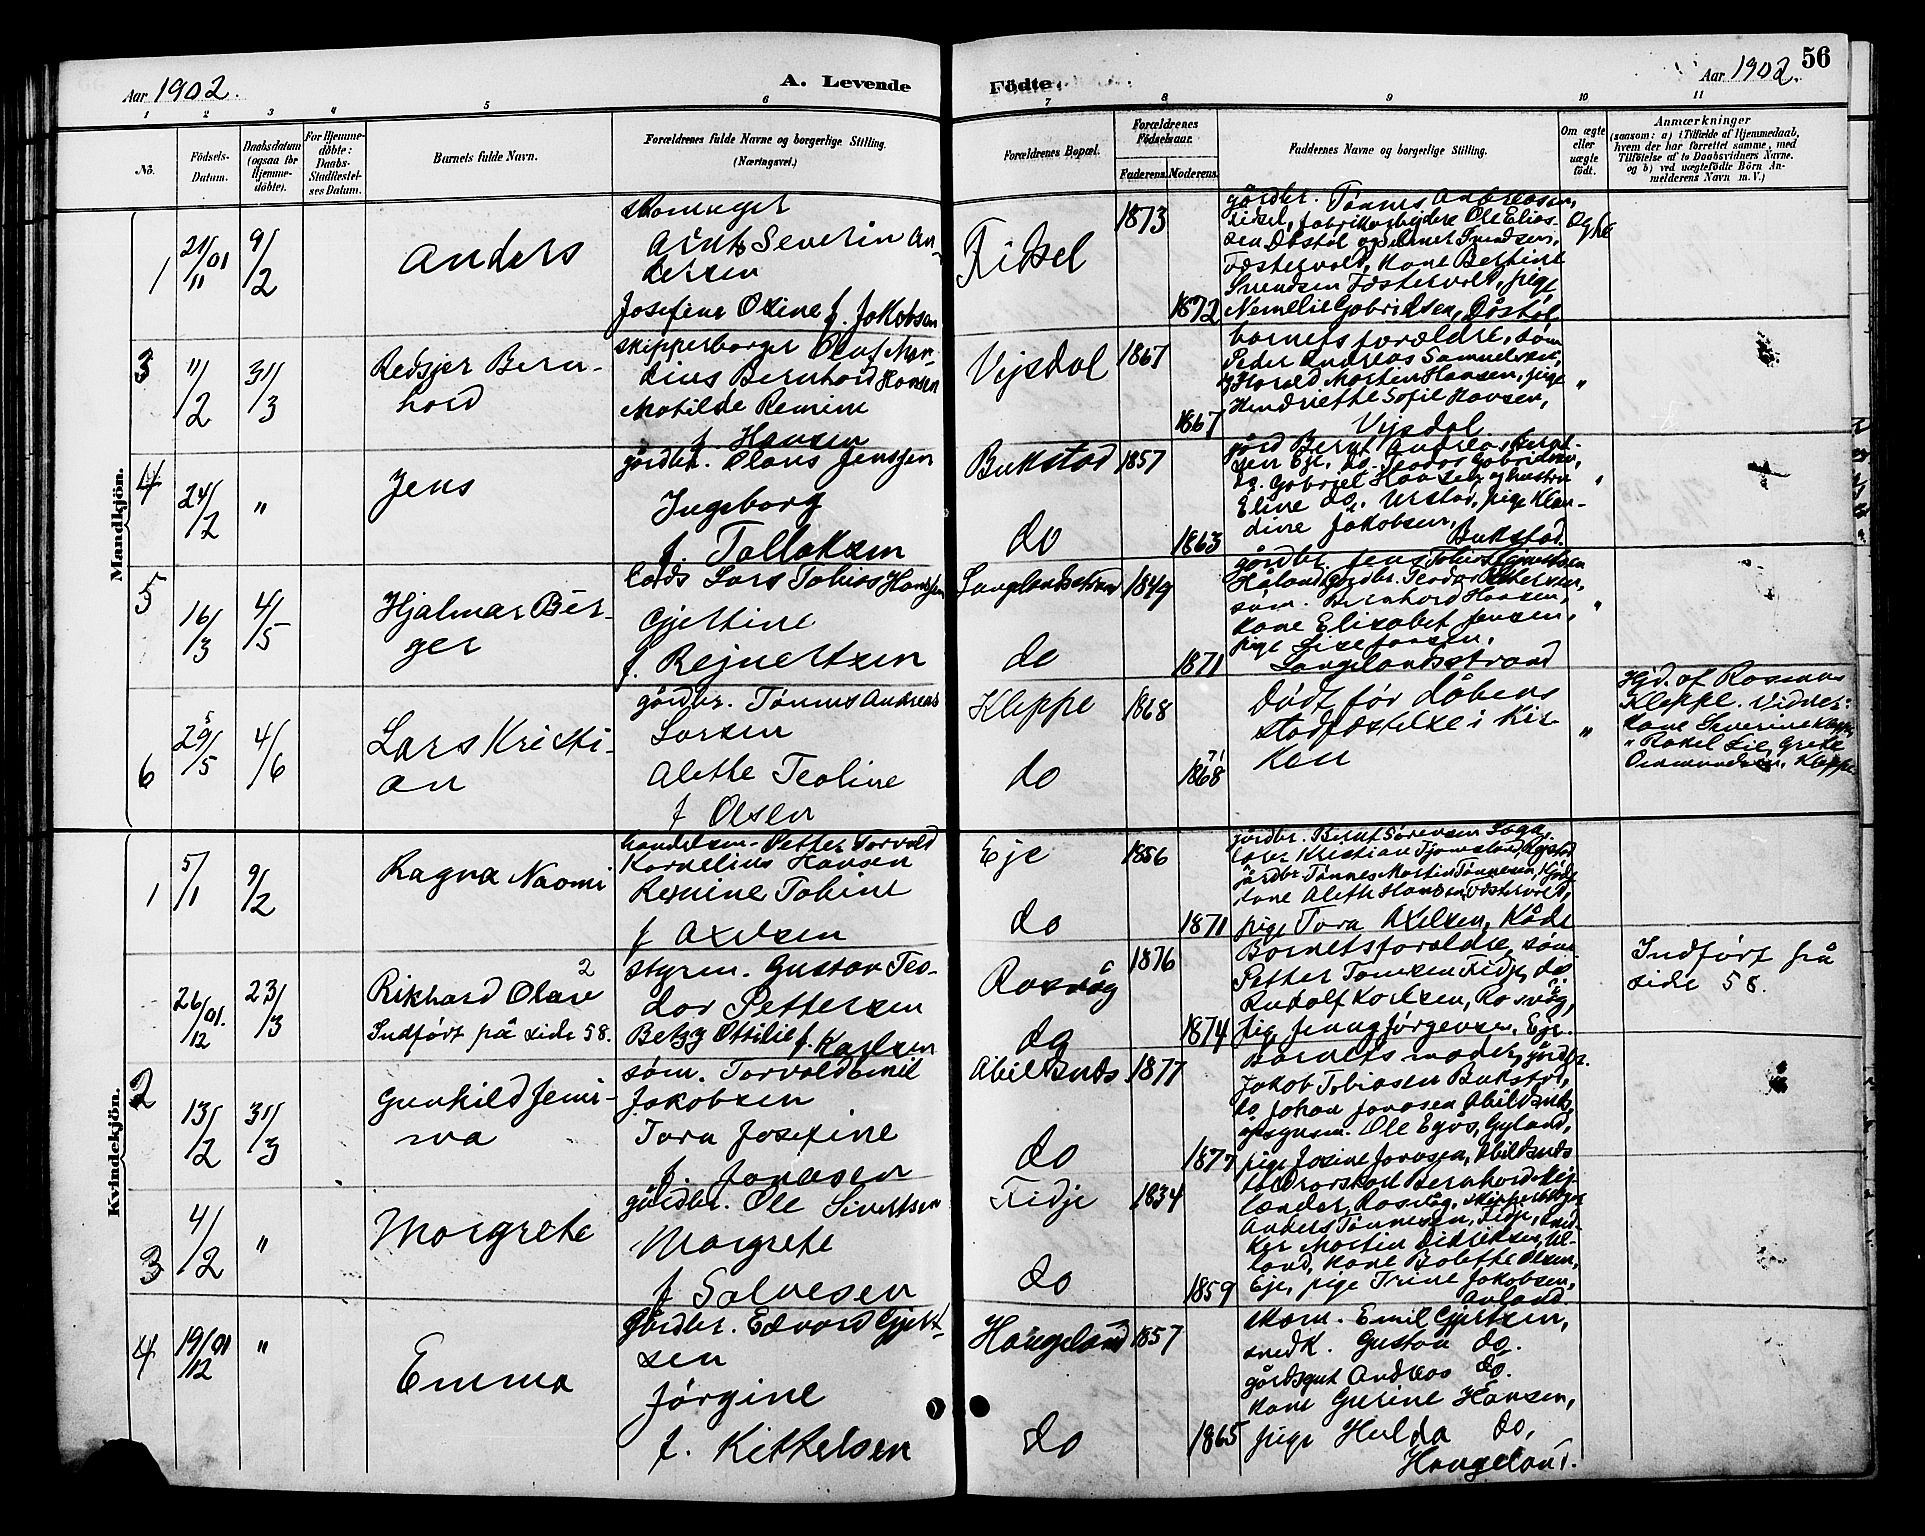 Aar 1902.
A. Levende
Födte.
Aar 1902.
56
1 2 3 4 5 6
7 8 9 10 11
No.
Födsels-
Datum.
Daabsdatum
(ogsaa för
Hjemme-
döbte).
For Hjemme-
döbte:
Daabs-
Stadfæstel-
ses Datum.
Barnets fulde Navn.
Forældrenes fulde Navne og borgerlige Stilling.
(Næringsvei.)
Forældrenes Bopæl.
Forældrenes
Födselsaar.
Faderens. Moderens.
Faddernes Navne og borgerlige Stilling.
Om ægte
eller
uægte
födt.
Anmærkninger
(saasom: a) i Tilfælde af Hjemmedaab,
hvem der har forrettet samme, med
Tilföielse af to Daabsvidners Navne.
og b) ved uægtefödte Börn An-
melderens Navn m. V.)
Mandkjön.
1
21/11 01
9/2
Anders
Severin An-
dersen
Josefine Oline f. Jakobsen
Fidsel
1873
1872
gårdbr. Tønnes Andreasen,
Fidsel, fabrikarbejdere Ole Elias-
sen
kone Bertine
Svendsen
Ægte
3
11/2
31/3
Redsjer Bern-
hard
skipperborger Olaf Mar-
dius Bernhard Hansen
Matilde Remine
f. Hansen
Vijsdal
1867
1867
barnets forældre, søm
Peder Andreas Samuelsen,
Harald Martin Hansen, pige
Henriette Sofie Hansen,
Vijsdal
"
4
24/2
"
Jens
gårdbr. Olaus Jenssen
Ingeborg
f. Tollaksen
Bukstad
do
1857
1863
gård Bernt Andreas
sen Eje, do. Gabrielsen,
do. Gabriel Hansen og hustru
Eline do. Urstad, pige Klau-
dine Jakobsen,
Bukstad.
"
5
16/3
4/5
Hjalmar Bir-
ger
lods Lars Tobias Hansen
Gjertine
f. Rejnertsen
Langlandsstrand
do
1849
1871
gårdbr. Jens Tobias
Håland, gårdbr. Teodor
søm. Bernhard Hansen,
kone Elisabet Jensen,
pige Lise Jansen.
Langelandsstrand
"
6
29/5
4/6
Lars Kristi-
an
gårdbr. Tønnes Andreas
Larsen
Alette Teoline
f. Olsen
Kleppe
do
1868
71
1868
Dødt før dåbens
stadfæstelse i kir-
ken
"
Hjd. af Rasmus
Kleppe. Vidner:
kone Severine Kleppe,
" Rakel Lie, Grete
Osmundsen, Kleppe
Kvindekjön.
1
5/1
9/2
Ragna Naomi
handelsm. Petter Torvald
Kornelius Hansen
Remine Tobine
f. Axelsen
Eje
do
1856
1871
gårdbr. Bernt Sørensen
lærer Kristian
gårdbr. Tønnes Martin Tønnesen,
kone Aleth Hansen,
pige Tora Axelsen, Kåde
26/12 01.
23/3
Rikhard Olav 2
Indført på side 58.
styrm. Gustav Teo-
dor Pettersen
Betzy Ottilie f. Karlsen
Rosvåg
do
1876
1874
Barnets forældre, søm
Petter Tomsen Fidje, do
Rudolf Karlsen, Rosvåg,
pig Jenny Jørgensen, Eje.
Indført på
side 58.
2
13/2
31/3
Gunhild Jemi-
ma
søm. Torvald Emil
Jakobsen
Tora Josefine
f. Jonasen
Abildsnds
do
1877
1877
Barnets moder, gårdbr.
Jakob Tobiasen Bukstad,
do Johan Jonasen Abildsnds,
Ole Egås, Gyland,
pige Josine Jonasen, Abildsnds
3
4/2
"
Margrete
gårdbr. Ole Sivertsen
Margrete
f. Salvesen
Fidje
do
1834
1859
Bernhard Mej-
lænder, Rosvåg, skipperborger
Anders Tønnesen, Fidje, sned-
ker Martin Didriksen,
land, kone Bolette Olsen,
Eje, pige Trine Jakobsen,
Avland.
4
19/12 01
"
Emma
gårdbr. Edvard Gjert-
sen
Jørgine
f. Kittelsen
Haugeland
do
1857
1865
skom. Emil Gjertsen,
snedk. Gustav do.
gårdsgut Andreas do.
kone Gurine Hansen,
pige Hulda do,
Haugeland.